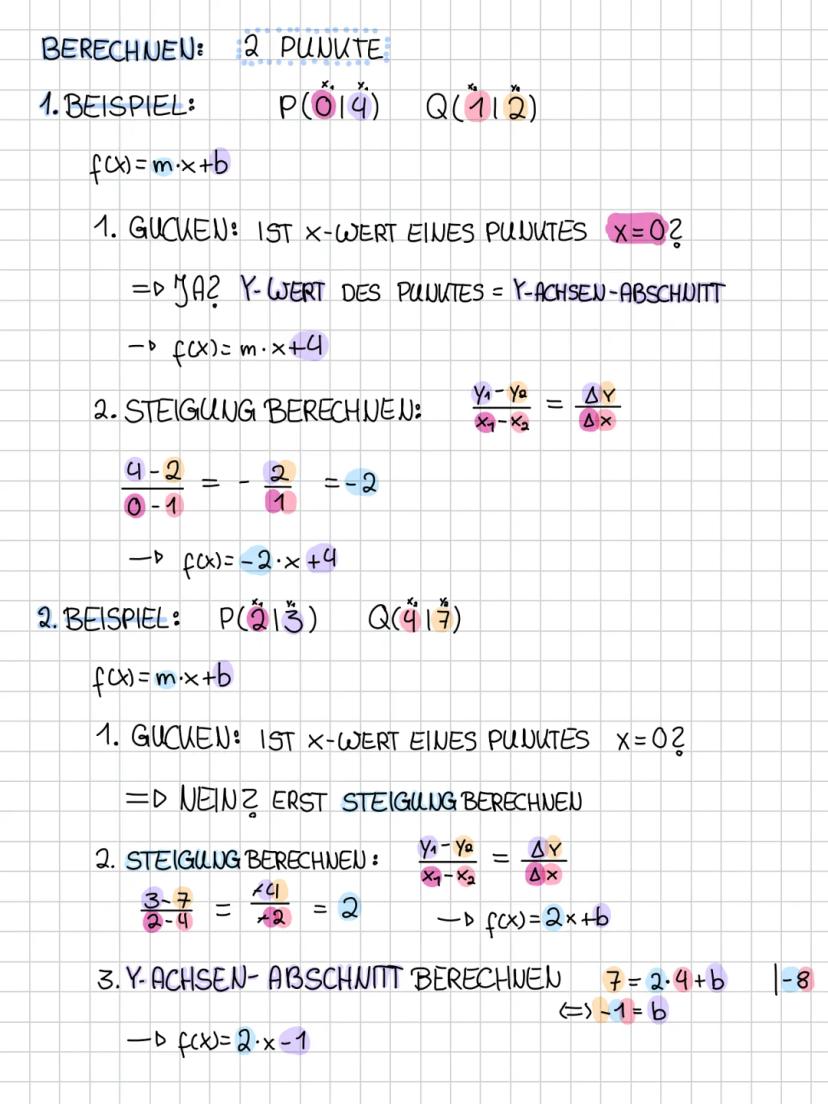 BERECHNEN: 2 PUNKTE
1. BEISPIEL: P(0|4) Q(1|2)
x₁ y₁ x₂ y₂
f(x) = m·x+b
1. GUCKEN: IST X-WERT EINES PUNKTES x=0?
=> JA? Y-WERT DES PUNKTES = Y-ACHSEN-ABSCHNITT
→ f(x) = m·x+4
2. STEIGUNG BERECHNEN: (y₁-y₂)/(x₁-x₂) = Δy/Δx
(4-2)/(0-1) = - 2/1 = -2
→ f(x) = -2·x+4
2. BEISPIEL: P(2|3) Q(4|7)
x₁ y₁ x₂ y₂
f(x) = m·x+b
1. GUCKEN: IST X-WERT EINES PUNKTES x=0?
=> NEIN? ERST STEIGUNG BERECHNEN
2. STEIGUNG BERECHNEN: (y₁-y₂)/(x₁-x₂) = Δy/Δx
(3-7)/(2-4) = -4/-2 = 2 → f(x) = 2x+b
3. Y-ACHSEN-ABSCHNITT BERECHNEN 7 = 2·4+b |-8
<=> -1 = b
→ f(x) = 2·x-1